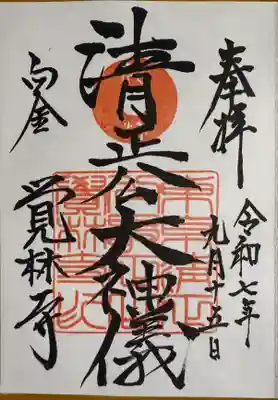 奉拝
令和七年
九月十五日
清正公大神儀
白金
覚林寺